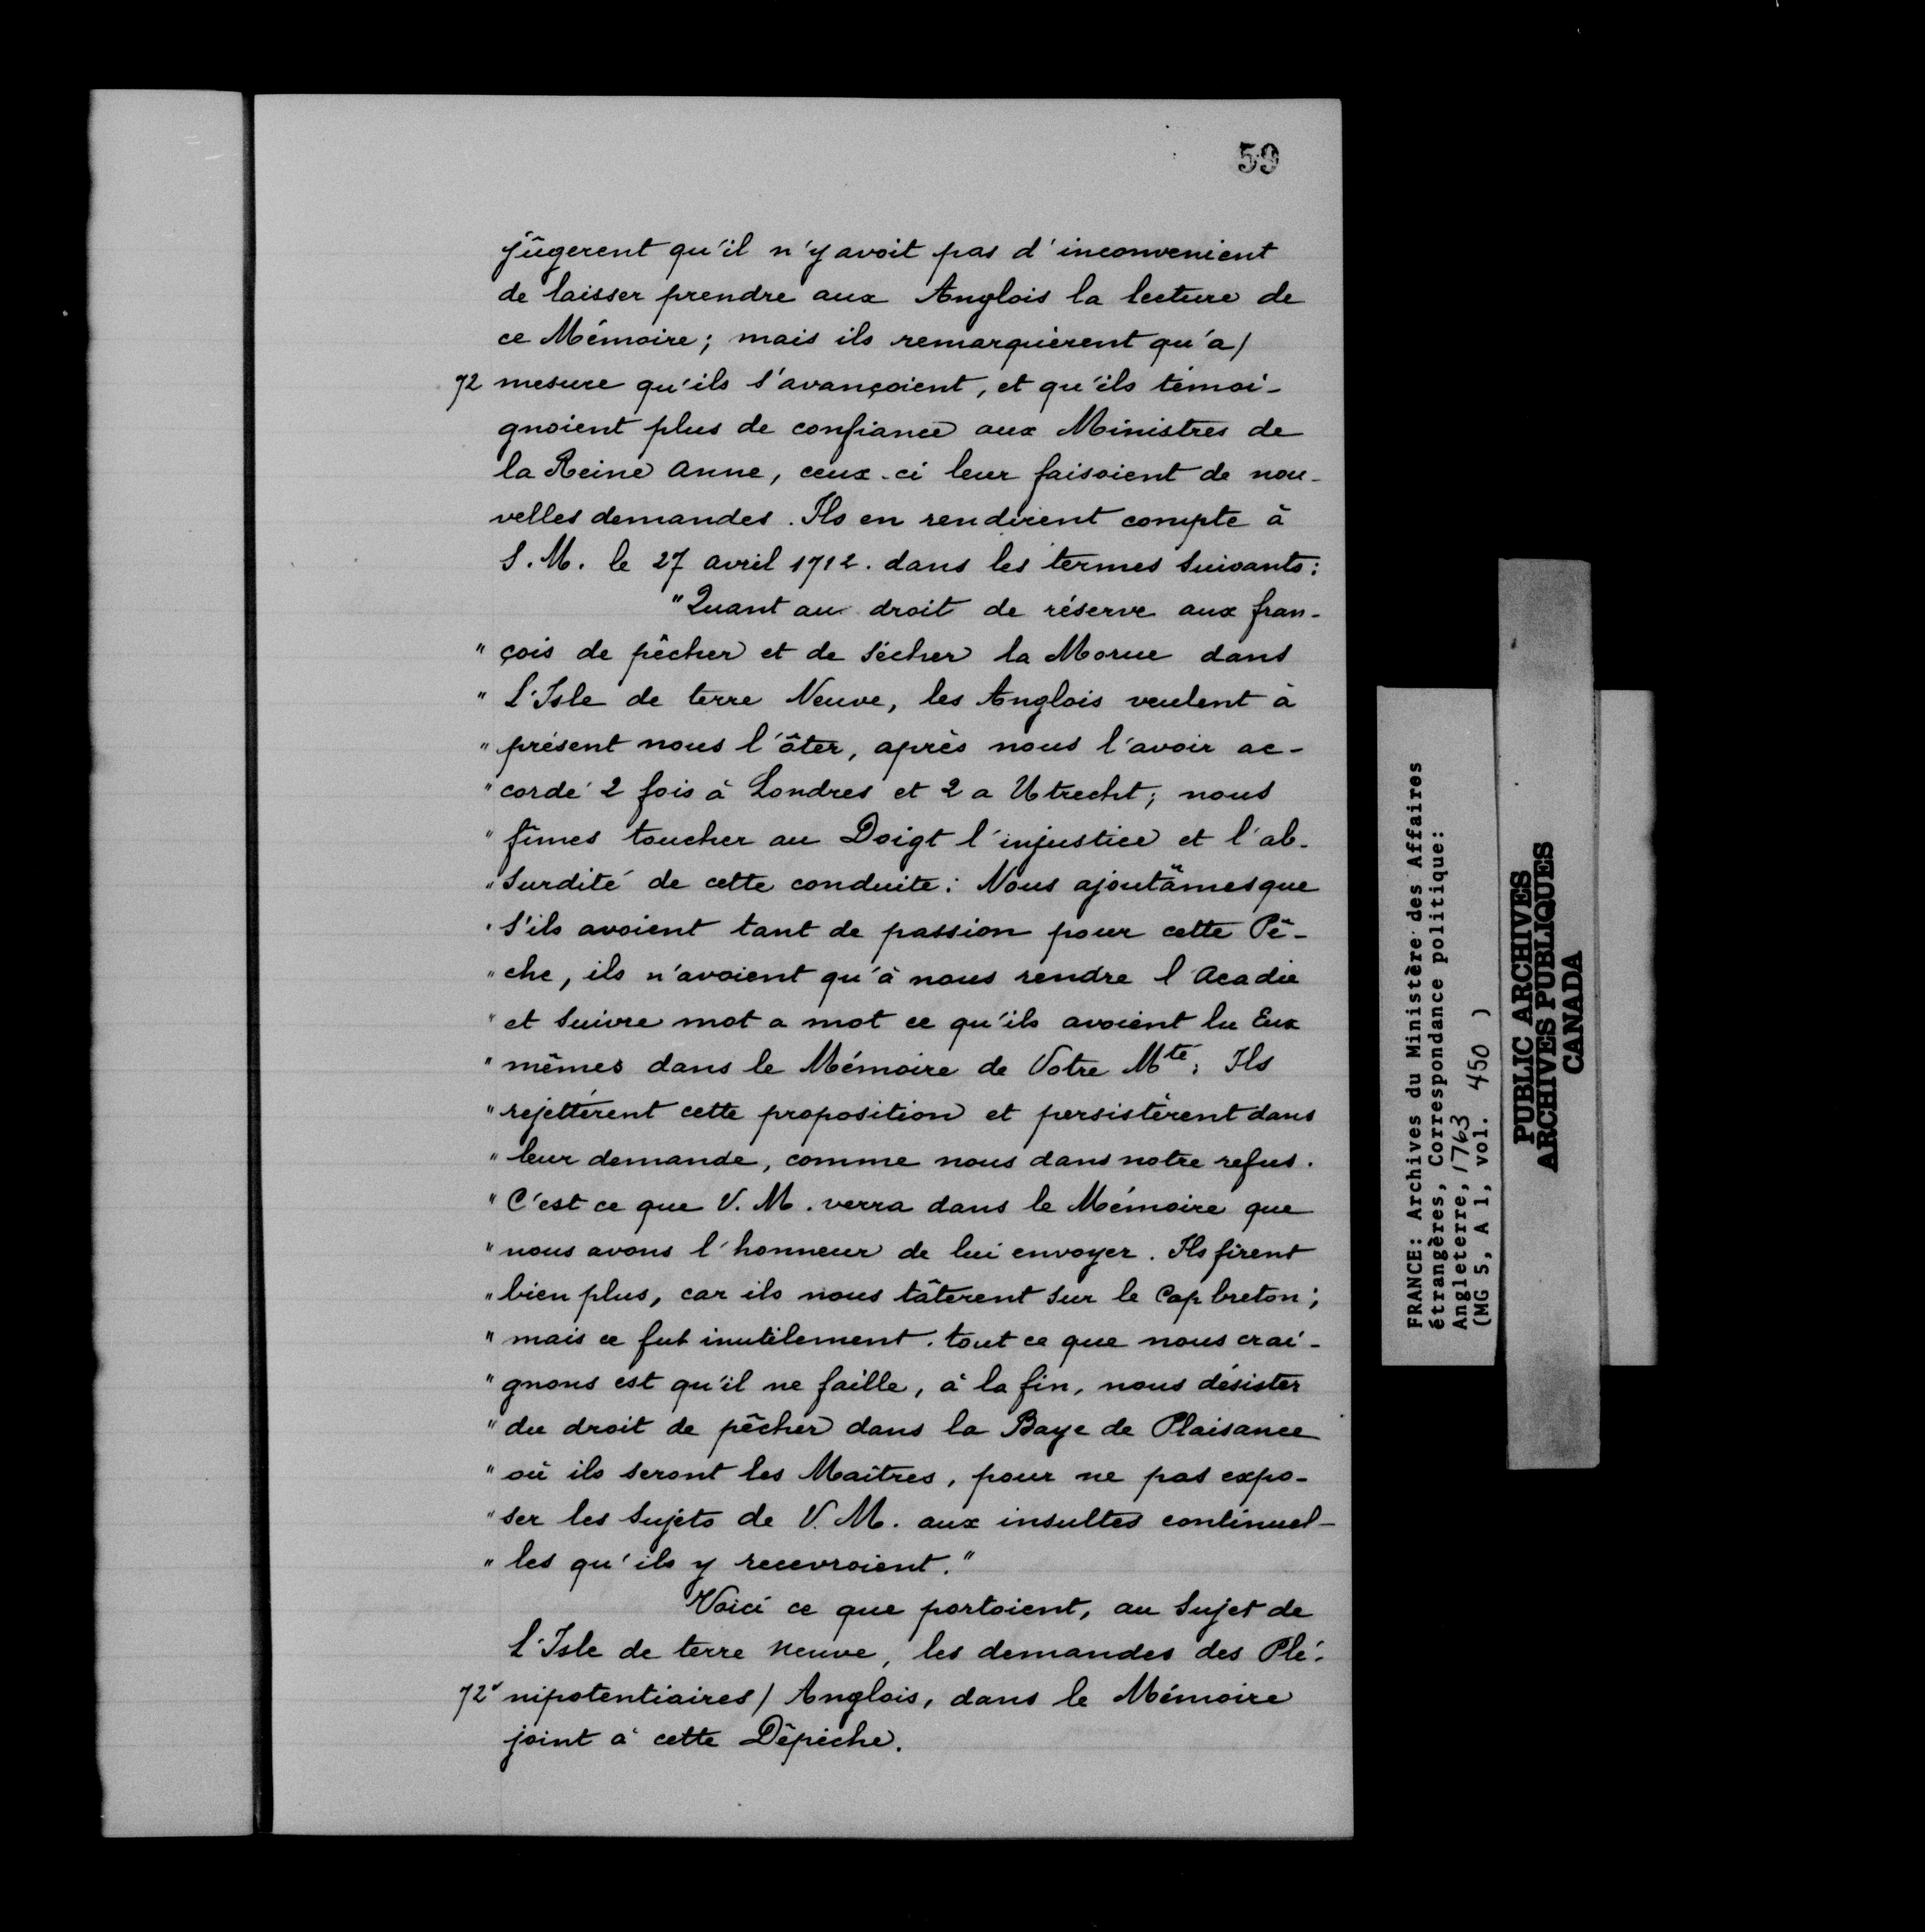 59
jûgerent qu'il n'y avoit pas d'inconvenient
de laisser prendre aux Anglois la lecture de
ce Mémoire; mais ils remarquèrent qu'a/
72 mesure qu'ils s'avançoient, et qu'ils témoi-
gnoient plus de confiance aux Ministres de
la Reine Anne, ceux-ci leur faisoient de nou-
velles demandes. Ils en rendirent compte à
S. M. le 27 avril 1712. dans les termes suivants:
"Quant au droit de réserve aux fran-
" çois de pêcher et de sécher la Morue dans
" L'Isle de terre Neuve, les Anglois veulent à
" présent nous l'ôter, après nous l'avoir ac-
" cordé 2 fois à Londres et 2 a Utrecht; nous
" fîmes toucher au Doigt l'injustice et l'ab-
" surdité de cette conduite: Nous ajoutâmes que
" s'ils avoient tant de passion pour cette Pê-
" che, ils n'avoient qu'à nous rendre l'Acadie
" et suivre mot a mot ce qu'ils avoient lu Eux
" mêmes dans le Mémoire de Votre Mté; Ils
" rejettèrent cette proposition et persistèrent dans
" leur demande, comme nous dans notre refus.
" C'est ce que V. M. verra dans le Mémoire que
" nous avons l'honneur de lui envoyer. Ils firent
" bien plus, car ils nous tâterent sur le Cap breton;
" mais ce fut inutilement. tout ce que nous crai-
" gnons est qu'il ne faille, à la fin, nous désister
" du droit de pêcher dans la Baye de Plaisance
" où ils seront les Maîtres, pour ne pas expo-
" ser les sujets de V. M. aux insultes continuel-
" les qu'ils y recevroient."
Voici ce que portoient, au sujet de
L'Isle de terre neuve, les demandes des Plé-
72v nipotentiaires/ Anglois, dans le Mémoire
joint à cette Dépêche.
FRANCE: Archives du Ministère des Affaires
étrangères, Correspondance politique:
Angleterre, 1763
(MG 5, A 1, vol. 450 )
PUBLIC ARCHIVES
ARCHIVES PUBLIQUES
CANADA